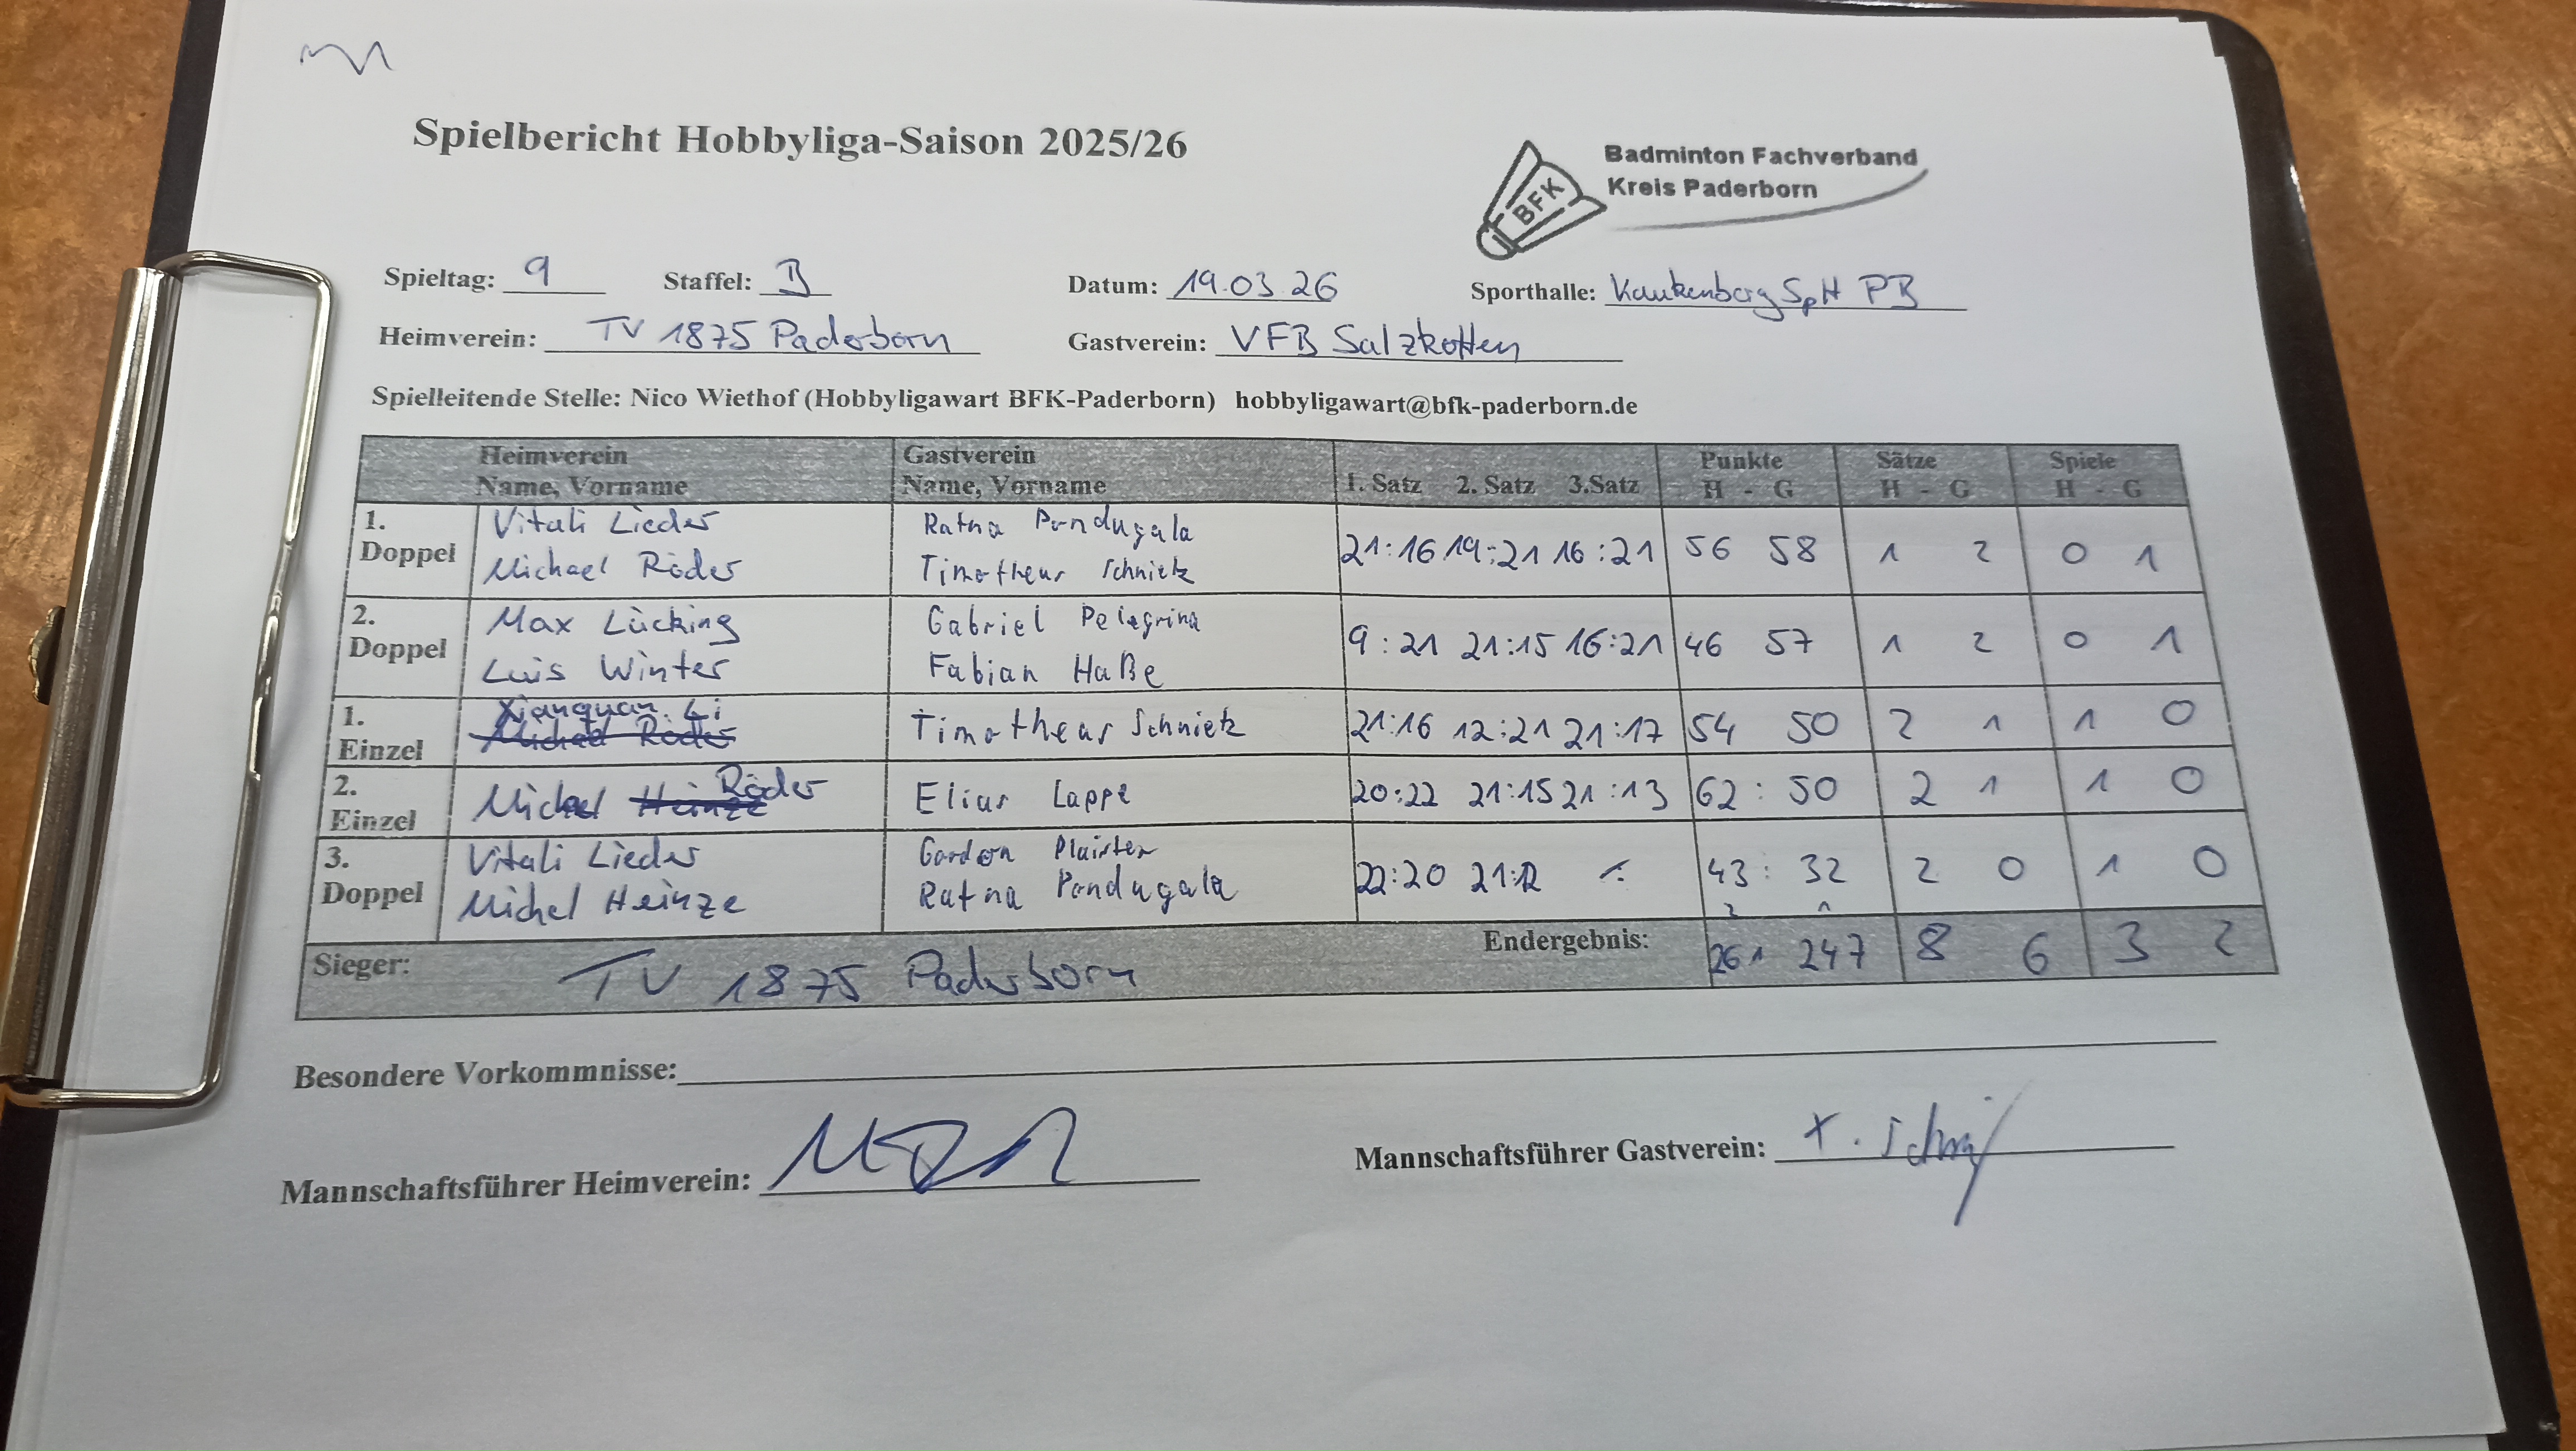 Spielbericht Hobbyliga-Saison 2025/26
BFK
Badminton Fachverband
Kreis Paderborn
Spieltag: 9 Staffel: B Datum: 19.03.26 Sporthalle: Kaukenberg SpH PB
Heimverein: TV 1875 Paderborn Gastverein: VFB Salzkotten
Spielleitende Stelle: Nico Wiethof (Hobbyligawart BFK-Paderborn) hobbyligawart@bfk-paderborn.de
Heimverein Gastverein Punkte Sätze Spiele
Name, Vorname Name, Vorname 1. Satz 2. Satz 3.Satz H - G H - G H - G
1. Vitali Lieder Ratna Pondugala
Doppel Michael Röder Timotheus Schnietz 21:16 19:21 16:21 56 58 1 2 0 1
2. Max Lücking Gabriel Pelegrina
Doppel Luis Winter Fabian Haße 9:21 21:15 16:21 46 57 1 2 0 1
1. Xianquan Li
Einzel Michael Röder Timotheus Schnietz 21:16 12:21 21:17 54 50 2 1 1 0
2. Röder
Einzel Michael Heinze Elias Lappe 20:22 21:15 21:13 62:50 2 1 1 0
3. Vitali Lieder Gordon Plaister
Doppel Michel Heinze Ratna Pondugala 22:20 21:12 43:32 2 0 1 0
2 1
Sieger: TV 1875 Paderborn Endergebnis: 261 247 8 6 3 2
Besondere Vorkommnisse:
Mannschaftsführer Heimverein: Mannschaftsführer Gastverein: